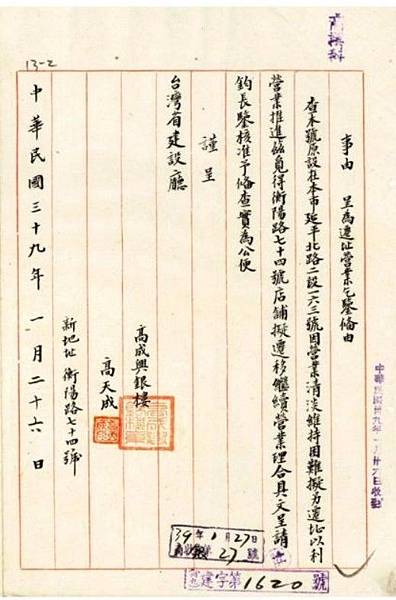 事由　呈為遷址營業乞鑒備由
查本號原設在本市延平北路二段一六三號因營業清淡維持困難擬另遷址以利
營業推進茲覓得衡陽路七十四號店舖擬遷移繼續營業理合具文呈請
鈞長鑒核准予備查實為公便
謹呈
台灣省建設廳
高成興銀樓
高天成
新地址 衡陽路七十四號
中華民國三十九年一月二十六日
13-2
39年1月27日
27號
建字第1620號